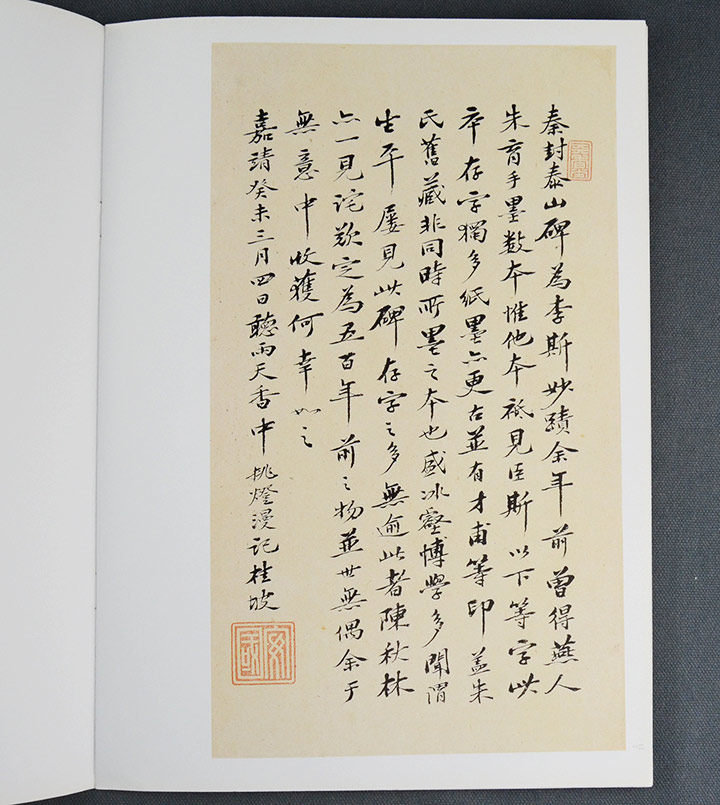 秦封泰山碑為李斯妙蹟余年前曾得燕人
朱育手墨數本惟他本祗見臣斯以下等字此
本存字獨多紙墨亦更古並有才甫等印蓋朱
氏舊藏非同時所墨之本也盛冰壑博學多聞謂
生平屢見此碑存字之多無逾此者陳秋林
亦一見詫歎定為五百年前之物並世無偶余于
無意中收獲何幸如之
嘉靖癸未三月四日聽雨天香中挑燈漫記桂坡
安國